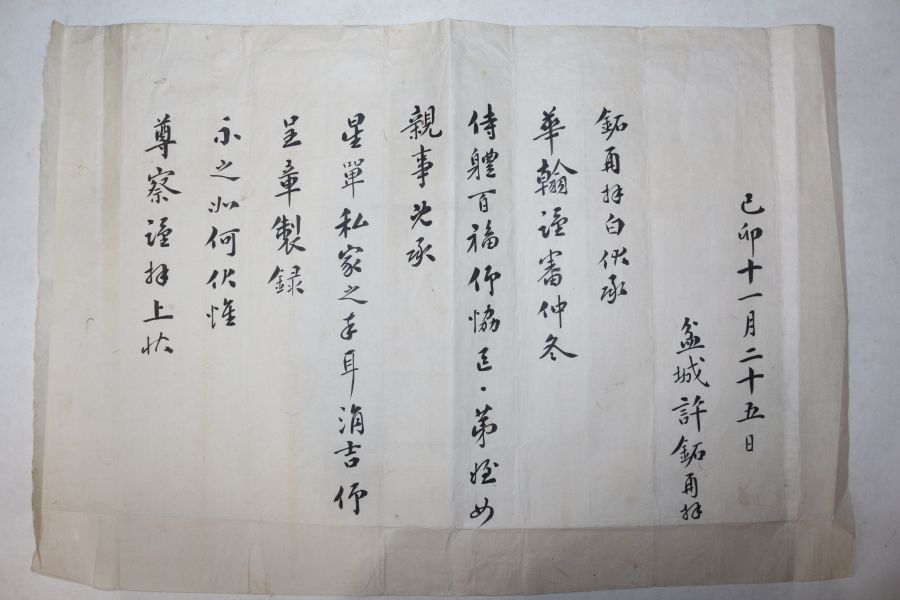 己卯十一月二十五日
盆城許鉐再拜
鉐再拜白伏承
華翰謹審仲冬
侍體百福仰恊第姪女
親事旣承
星單私家之幸耳涓吉仰
呈章製錄
示之如何伏惟
尊察謹拜上狀